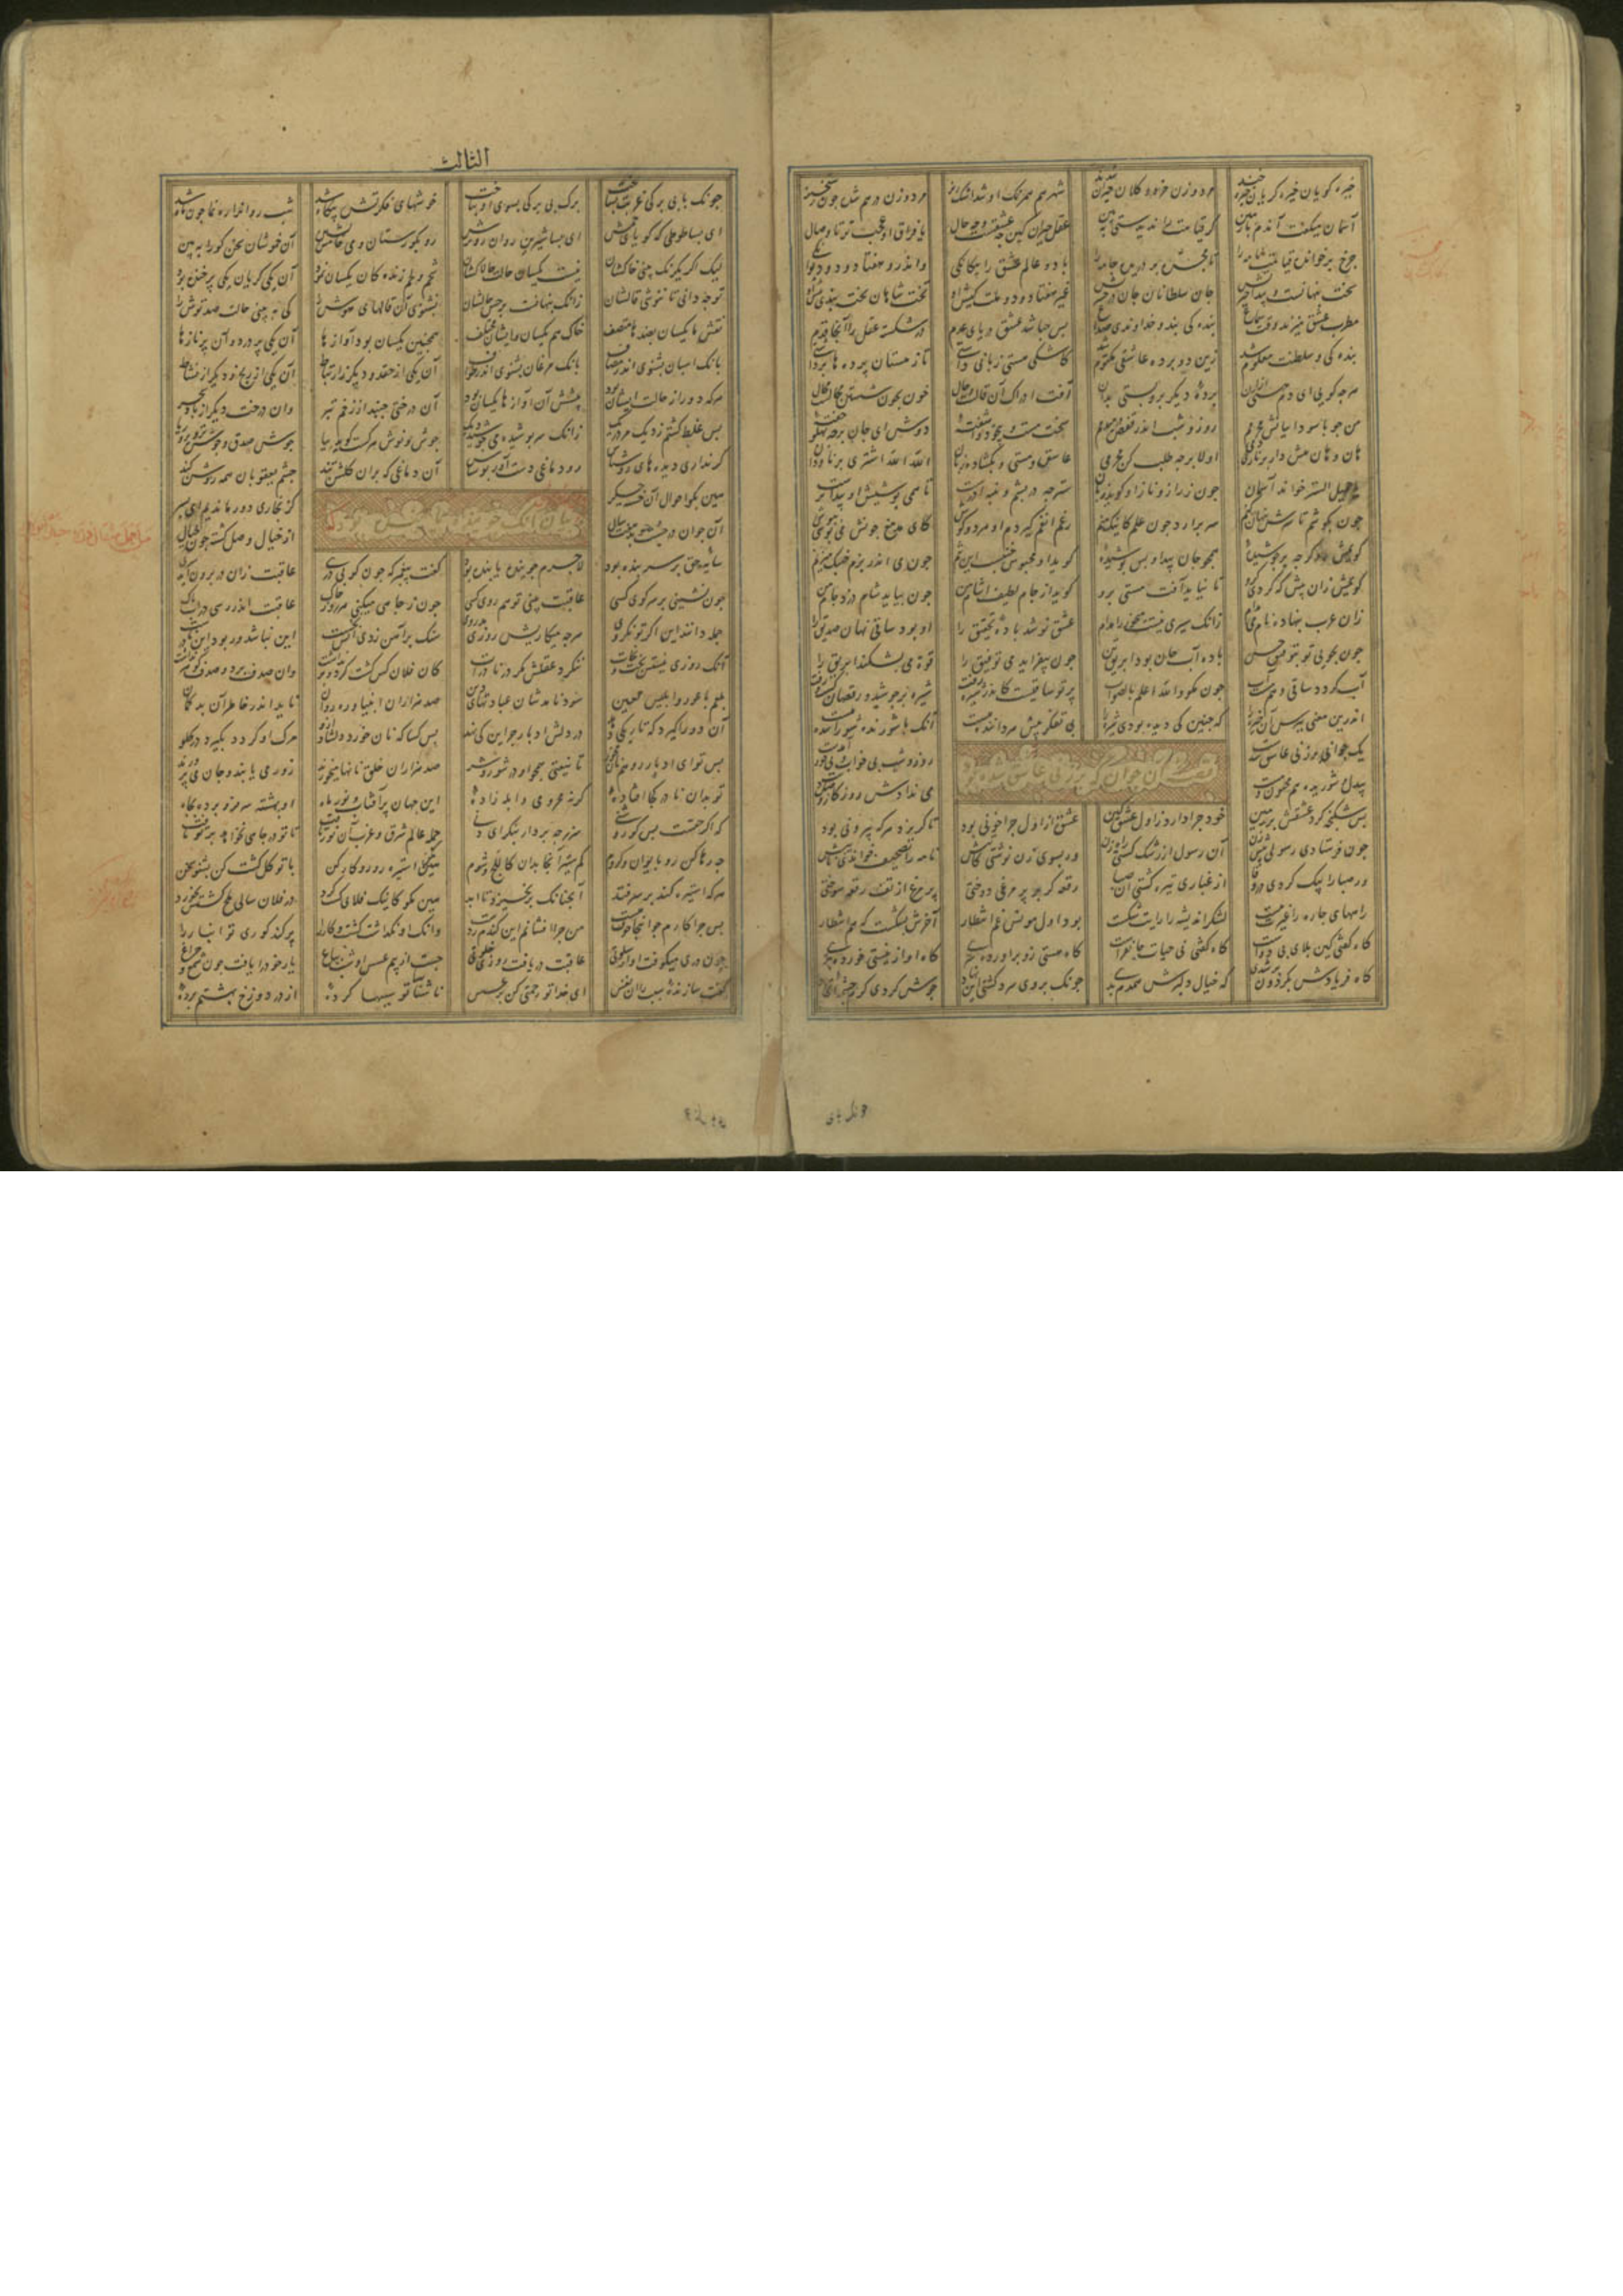 خیره کویان خیره کریان خیره خند مرد و زن خرد و کلان حیران شدند شهر هم همرنک او شد اشک ریز مرد و زن درهم شده جون رستخیز
آسمان میکفت آندم با زمین کر قیامت را ندیدستی ببین عقل حیران کین جه عشقست و جه حال یا فراق او عجب تر یا وصال
جرخ بر خوانده قیامت نامه را تا مجره بر دریده جامه را با دو عالم عشق را بیکانکی واندرو هفتاد و دو دیوانکی
سخت پنهانست و پیدا حیرتش جان سلطانان جان در حسرتش غیر هفتاد و دو ملت کیش او تخت شاهان تخته بندی پیش او
مطرب عشق این زند وقت سماع بندکی بند و خداوندی صداع بس جه باشد عشق دریای عدم در شکسته عقل را آنجا قدم
بندکی و سلطنت معلوم شد زین دو برده عاشقی مکتوم شد کاشکی هستی زبانی داشتی تا ز هستان پرده ها برداشتی
هرجه کویی ای دم هستی ازان بردۀ دیکر برو بستی بدان آفت ادراک آن قالست و حال خون بخون شستن محالست و محال
من جو با سوداییانش محرمم روز و شب اندر قفص در میدمم سخت مست و بیخود و آشفتۀ دوش ای جان بر جه پهلو خفتۀ
هان و هان هش دار بر ناری دمی اولا برجه طلب کن محرمی عاشق و مستی و بکشاده زبان الله الله اشتری بر ناودان
یا جمیل الستر خواند آسمان جون ز راز و ناز او کوید زبان ستر جه در پشم و پنبه آذرست تا همی پوشیش او پیداترست
جون بکوشم تا سرش پنهان کنم سر برارد جون علم کاینک منم رغم انفم کیردم او هر دو کوش کای مدمغ جونش می پوشی بپوش
کویمش رو کرجه بر جوشیدۀ همجو جان پیدا و بس پوشیدۀ کوید او محبوس خنبست این تنم جون می اندر بزم خنبک میزنم
کویمش زان پیش که کردی کرو تا نیاید آفت مستی برو کوید از جام لطیف آشام من جون بیاید شام و دزدد جام من
زان عرب بنهاد نام می مدام زانک سیری نیست میخور را مدام عشق جوشد بادۀ تحقیق را او بود ساقی نهان صدیق را
جون بجویی تو بتوفیق حسن باده آب جان بود ابریق تن جون بیفزاید می توفیق را قوة می بشکند ابریق را
آب کردد ساقی و هم مست آب جون مکو والله اعلم بالصواب پرتو ساقیست کاندر شیره رفت شیره بر جوشید و رقصان کشت زفت
اندرین معنی بپرس آن خیره را که جنین کی دیده بودی شیره را بی تفکر پیش هر داننده هست آنک با شورنده شوراننده هست
یک جوانی بر زنی عاشق شدست روز و شب بی خواب و بی خور آمدست
قصه آن جوان که بر زنی عاشق شده بود
بیدل و شوریده و هم مجنون و مست می ندادش روزکار وصل دست
بس شکنجه کرد عشقش بر زمین خود جرا دارد ز اول عشق کین عشق از اول جرا خونی بود تا کریزد هرکه بیرونی بود
جون فرستادی رسولی پیش زن آن رسول از رشک کشتی راه زن ور بسوی زن نوشتی کاتبش نامه را تصحیف خواندی نایبش
ور صبا را پیک کردی در وفا از غباری تیره کشتی آن صبا رقعه کر بر پر مرغی دوختی پر مرغ از تف رقعه سوختی
راههای جاره را غیرت ببست لشکر اندیشه را رایت شکست بود اول مونس غم انتظار آخرش بشکست که هم انتظار
کاه کفتی کین بلای بی دواست کاه کفتی نی حیات جان ماست کاه هستی زو براوردی سری کاه او از نیستی خوردی بری
کاه فریادش بکردون میشدی که خیال دلبرش همدم بدی جونک بر وی سرد کشتی این نهاد جوش کردی کرم جشمه اتحاد
الثالث
جونک با بی برکی غربت بساخت برک بی برکی بسوی او بتاخت خوشهای فکرتش بیکاه شد شب روانرا رهنما جون ماه شد
ای بسا طوطی کویای خمش ای بسا شیرین روان رو ترش رو بکورستان دمی خامش نشین آن خموشان سخن کو را ببین
لیک اکر یکرنک بینی خاکشان نیست یکسان حالت جالاکشان شحم و لحم زندکان یکسان بود آن یکی کریان یکی پر خنده بود
تو جه دانی تا ننوشی قالشان زانک پنهانست بر تو حالشان نشنوی آن قالهای هوش را کی ببینی حالت صد توش را
نقش ما یکسان بضدها متصف خاک هم یکسان روانشان مختلف همجنین یکسان بود آوازها آن یکی پر درد و آن پر نازها
بانک اسبان بشنوی اندر مصاف بانک مرغان بشنوی اندر طواف آن یکی از حقد و دیکر ز ارتباط آن یکی از رنج و دیکر از نشاط
هرکه دور از حالت ایشان بود پیشش آن آوازها یکسان بود آن درختی جنبد از زخم تبر وان درخت دیکر از باد سحر
بس غلط کشتم ز دیک مرده ریک زانک سرپوشیده می جوشید دیک جوش و نوش هرکست کوید بیا جوش صدق و جوش تزویر و ریا
کر نداری دیده های روشناس رو دماغی دست آور بوشناس آن دماغی که بران کلشن تند جشم یعقوبان همو روشن کند
هین بکو احوال آن خسته جکر کز بخاری دور ماندیم ای پسر
بیان آنک جوینده یابنده بود
آن جوان در جست و جو بد هفت سال از خیال وصل کشته جون خیال
سایه حق بر سر بنده بود لاجرم جوینده یابنده بود کفت پیغمبر که جون کوبی دری عاقبت زان در برون آید سری
جون نشینی بر سر کوی کسی عاقبت بینی تو هم روی کسی جون ز جاهی میکنی هر روز خاک عاقبت اندر رسی در آب پاک
جمله دانند این اکر تو نکروی هرجه میکاریش روزی بدروی سنک بر آهن زدی آتش نجست این نباشد ور بود این نادرست
آنک روزی نیستش بخت و نجات ننکرد عقلش مکر در نادرات کان فلان کس کشت کرد و بر نداشت وان صدف برد و صدف کوهر نداشت
بلعم باعور و ابلیس لعین سود نامدشان عبادتها و دین صد هزاران انبیا و ره روان ناید اندر خاطر آن بدکمان
آن دو را کیرد که تاریکی دهد در دلش ادبار جز این کی نهد بس کسا که نان خورد دلشاد او مرک او کردد بکیرد در کلو
بس تو ای ادبار رو هم نان مخور تا نیفتی همجو او در شور و شر صد هزاران خلق نانها میخورند زور می یابند و جان می پرورند
تو بدان نادر کجا افتادۀ کرنه محرومی و ابله زادۀ این جهان پر آفتاب و نور ماه او بهشته سر فرو برده بجاه
که اکر حقست بس کو روشنی سر ز جه بردار بنکر ای دنی جمله عالم شرق و غرب آن نور یافت تا تو در جاهی نخواهد بر تو تافت
جه رها کن رو بایوان و کروم کم ستیز اینجا بدان کاللج شوم استیزه رو رو کار کن با توکل کشت کن بشنو سخن
هرکه استیزه کند بر سر فتد آنجنانک برنخیزد تا ابد هین مکو کاینک فلانی کشت کرد در فلان سالی ملخ کشتش بخورد
بس جرا کارم جو اینجا خوف هست من جرا افشانم این کندم ز دست وانک او نکذاشت کشت و کار را پر کند کوری تو انبار را
جون دری میکوفت او از سلوتی عاقبت دریافت روزی خلوتی جست از بیم عسس او شب بباغ یار خود را یافت جون شمع و جراغ
کفت سازنده سبب را آن نفس ای خدا تو رحمتی کن بر عسس ناشناسا تو سببها کردۀ از در دوزخ بهشتم بردۀ